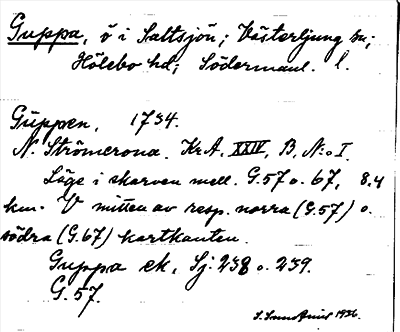 Guppa, ö i Saltsjön; Västerljung sn;
Hölebo hd; Södermanl. l.
Guppen, 1734.
N. Strömcrona. Kr. A. XXIV, B, N:o I.
Läge i skarven mell. G.57 o. 67, 8.4
km. V mitten av resp. norra (G.57) o.
södra (G.67) kartkanten.
Guppa ek, Sj: 238 o. 239.
G. 57.
1936.